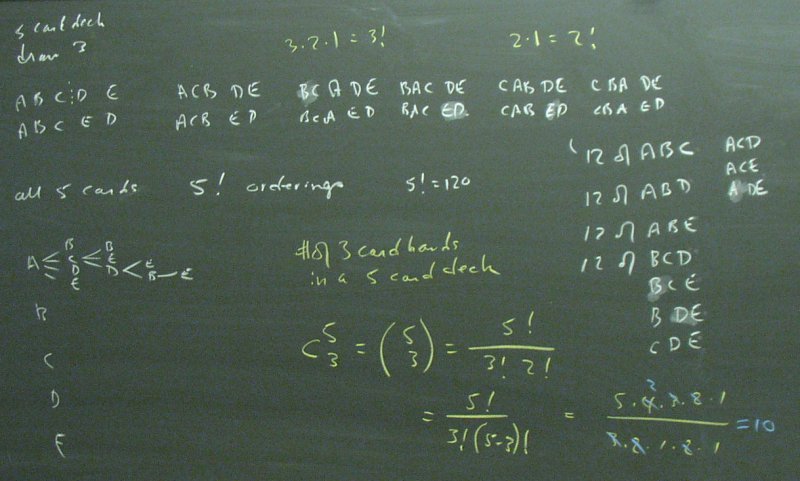 5 card deck
draw 3
3·2·1 = 3!
2·1 = 2!
A B C D E   ACB DE   BCA DE   BAC DE   CAB DE   CBA DE
A B C E D   ACB ED   BCA ED   BAC ED.   CAB ED   CBA ED
12 of ABC   ACD
ACE
12 of ABD   A DE
12 of ABE
12 of BCD
BCE
B DE
C D E
all 5 cards   5! orderings   5! = 120
A B C D E B E D E B — E
B
C
D
E
# of 3 card hands
in a 5 card deck
C 5 3 = (5 3) = 5! / 3! 2!
= 5! / 3!(5-3)! = 5·4·3·2·1 / 3·2·1·2·1 = 10
2